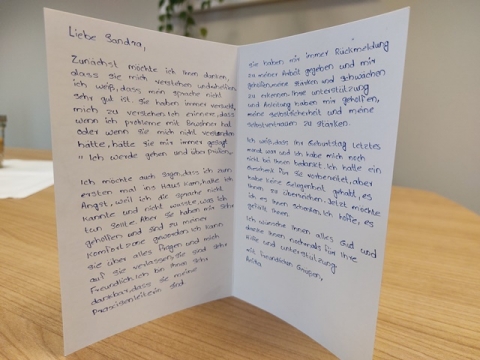 Liebe Sandra,
Zunächst möchte ich Ihnen danken,
dass sie mich verstehen und
ich weiß, dass mein sprache nicht
sehr gut ist. Sie haben immer versucht,
mich zu verstehen. Ich erinnere, dass
wenn ich probleme mit hatte
oder wenn sie mich nicht verstanden
hatte, hatte sie mir immer gesagt
"Ich werde gehen und überprüfen."
Ich möchte auch sagen, dass ich zum
ersten mal ins Haus kam, habe ich
Angst, weil ich die sprache nicht
kannte und nicht wusste, was ich
tun sollte. Aber sie haben mir sehr
geholfen und sind zu meiner
Komfortzone geworden. Ich kann
sie über alles fragen und mich
auf sie verlassen. Sie sind sehr
Freundlich. Ich bin Ihnen sehr
dankbar, dass sie meine
Praxisanleiterin sind
Sie haben mir immer Rückmeldung
zu meiner Arbeit gegeben und mir
geholfen, meine stärken und schwächen
zu erkennen. Ihre unterstützung
und Anleitung haben mir geholfen,
meine selbstsicherheit und meine
selbstvertrauen zu stärken.
Ich weiß, dass Ihr Geburtstag letztes
mond war und ich habe mich noch
nicht bei Ihnen bedankt. Ich hatte ein
für Sie vorbereitet, aber
habe keine gehabt, es
Ihnen zu überreichen. Jetzt möchte
ich es Ihnen schenken. Ich hoffe, es
gefällt Ihnen
Ich wünsche Ihnen alles Gut und
danke Ihnen nochmals für Ihre
Hilfe und unterstützung.
mit freundlichen Grüßen,
Anita